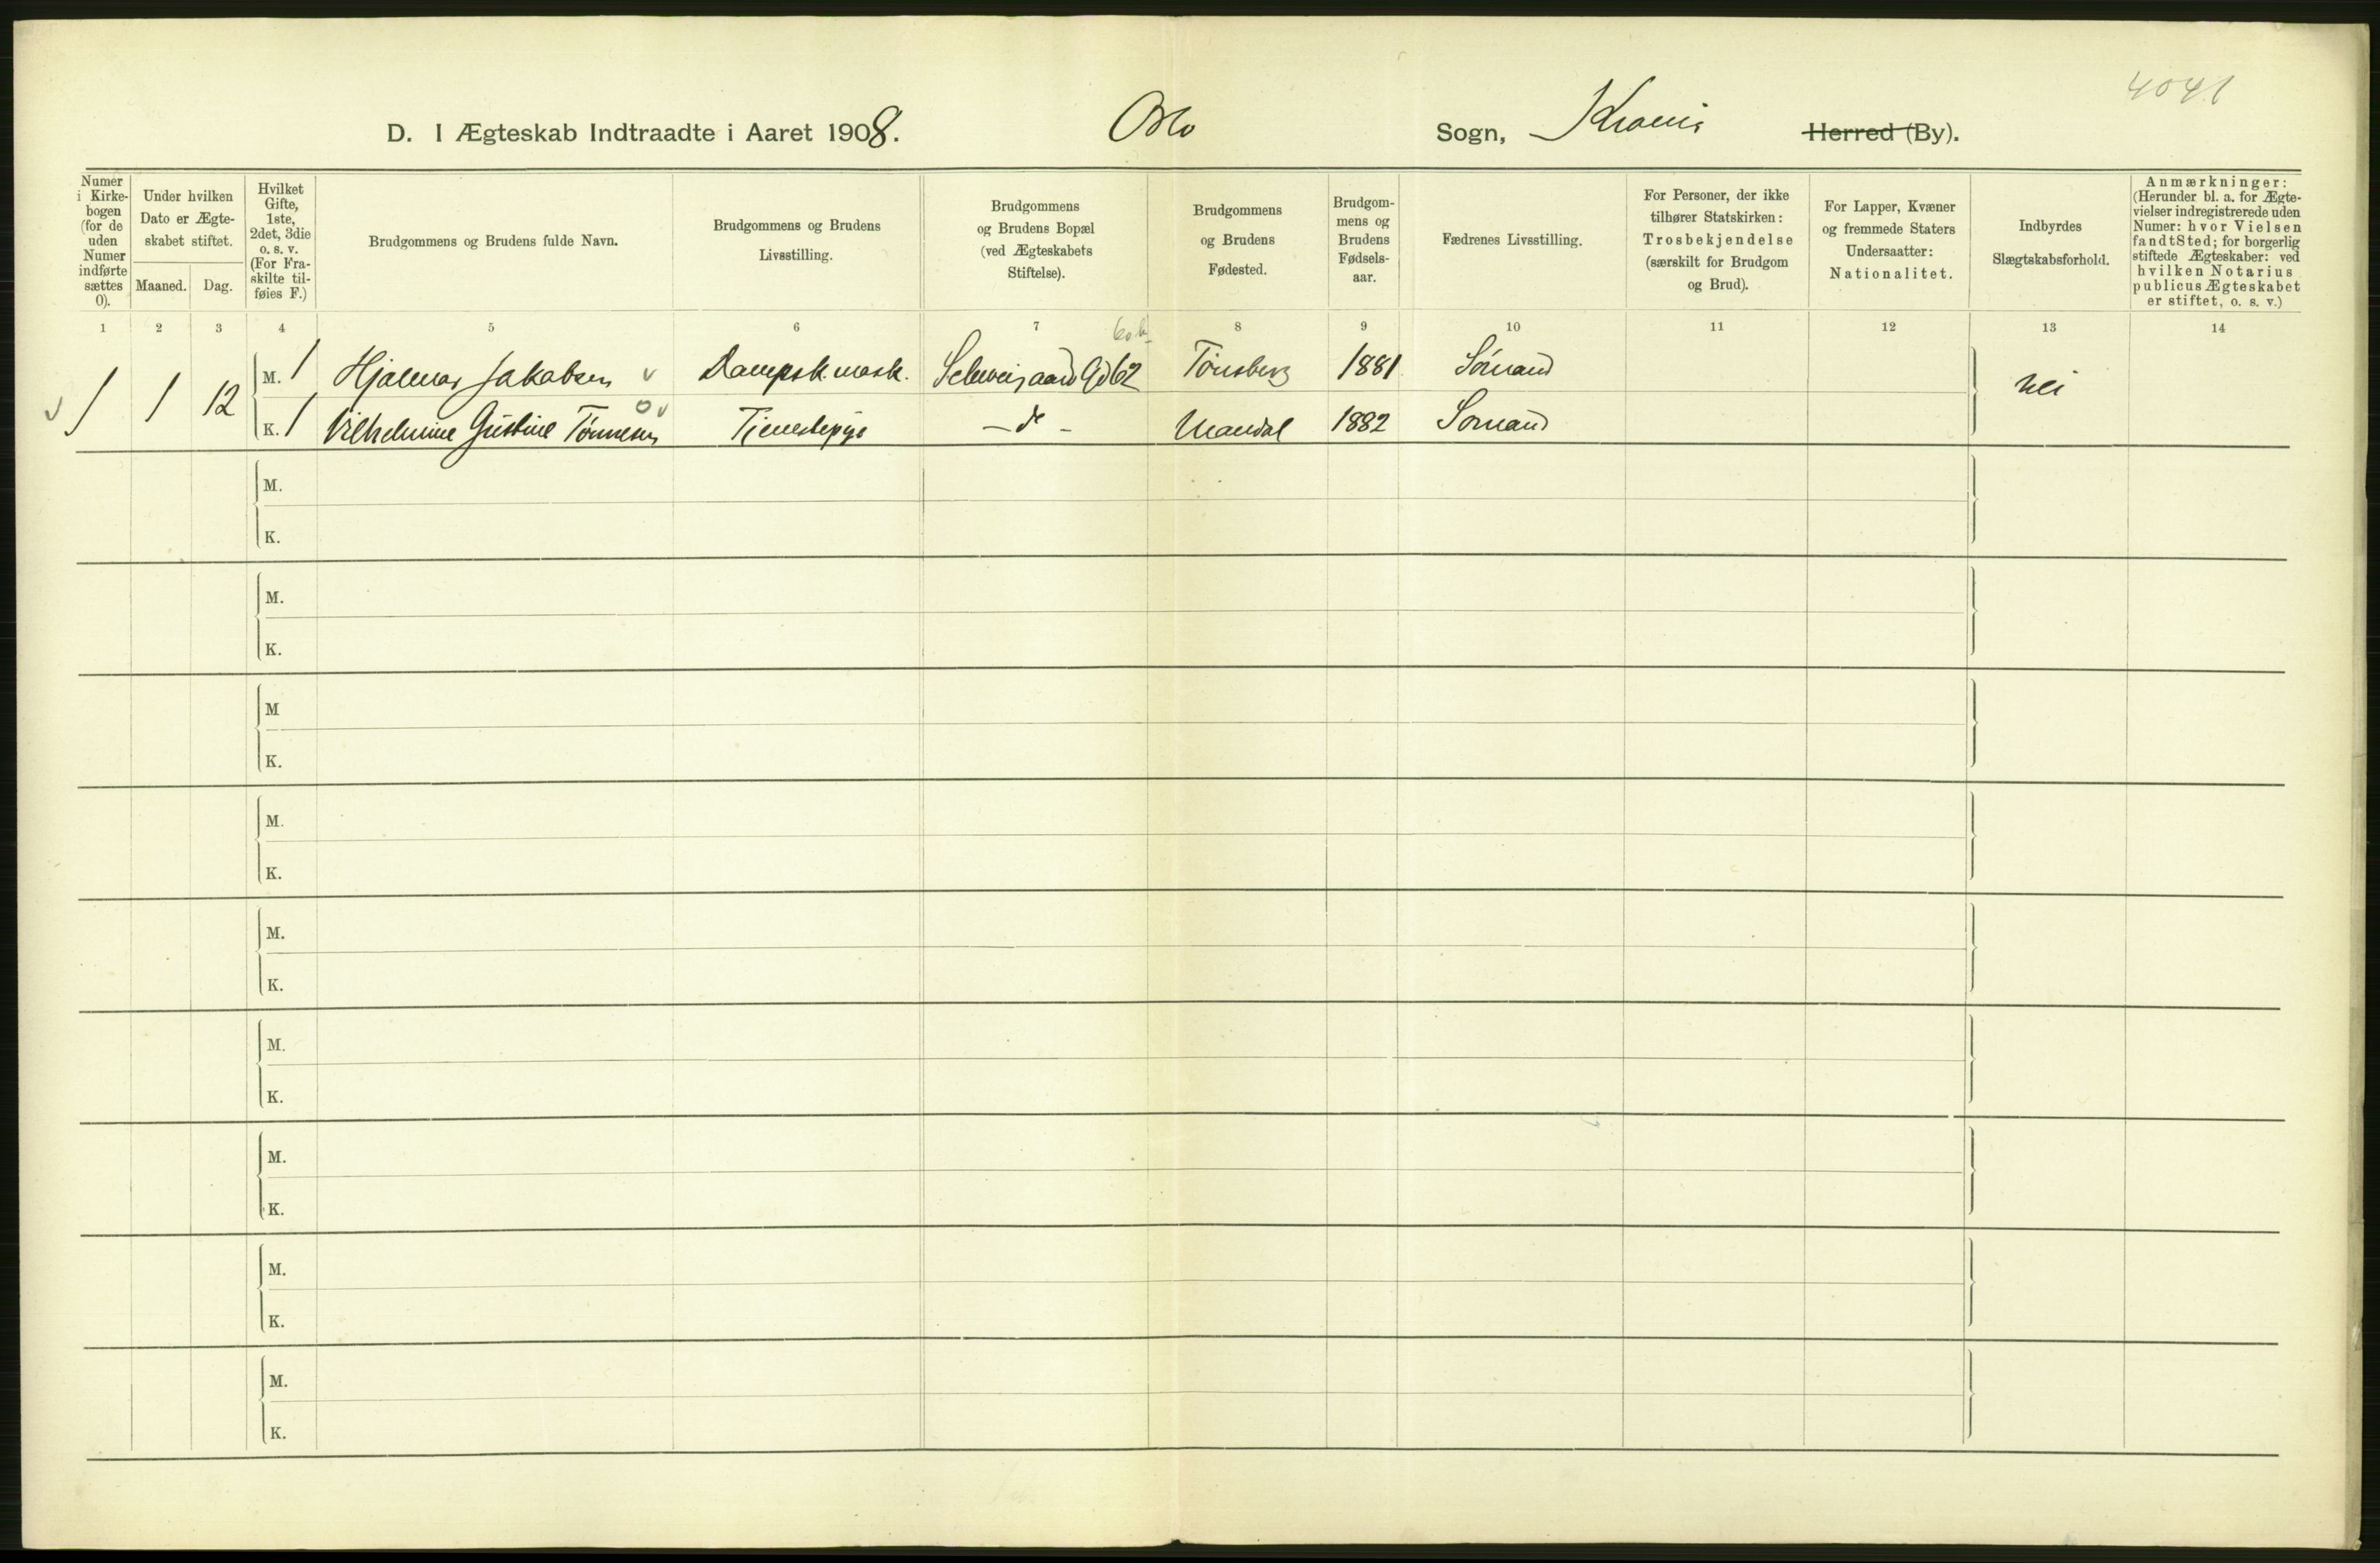 4041
D. I Ægteskab Indtraadte i Aaret 1908. Oslo Sogn, Kra̅nia Herred (By).
Numer i Kirke-bogen (for de uden Numer indførte sættes 0).
Under hvilken Dato er Ægte-skabet stiftet.
Maaned. Dag.
Hvilket Gifte, 1ste, 2det, 3die o. s. v. (For Fra-skilte til-føies F.)
Brudgommens og Brudens fulde Navn.
Brudgommens og Brudens Livsstilling.
Brudgommens og Brudens Bopæl (ved Ægteskabets Stiftelse).
Brudgommens og Brudens Fødested.
Brudgom-mens og Brudens Fødsels-aar.
Fædrenes Livsstilling.
For Personer, der ikke tilhører Statskirken: Trosbekjendelse (særskilt for Brudgom og Brud).
For Lapper, Kvæner og fremmede Staters Undersaatter: Nationalitet.
Indbyrdes Slægtskabsforhold.
Anmærkninger: (Herunder bl. a. for Ægte-vielser indregistrerede uden Numer: hvor Vielsen fandt Sted; for borgerlig stiftede Ægteskaber: ved hvilken Notarius publicus Ægteskabet er stiftet, o. s. v.)
1 2 3 4 5 6 7 8 9 10 11 12 13 14
1 1 12 M. 1 Hjalmar Jakobsen Dampsk. mask. Schweigaard Gd 62 Tønsberg 1881 Sømand nei
K. 1 Vilhelmine Gustine Tønnesen Tjenestepige — do — Mandal 1882 Sømand
M.
K.
M.
K.
M
K.
M.
K.
M.
K.
M.
K.
M.
K.
M.
K.
M.
K.